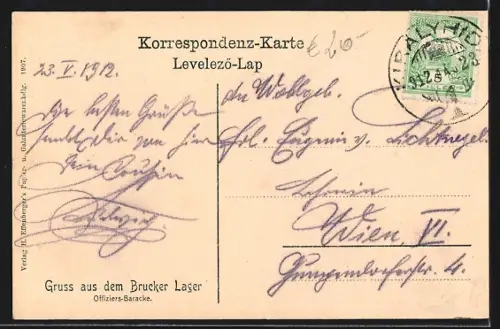 Korrespondenz-Karte
Levelező-Lap
€20-
KIRALYHID
23. V. 1912.
Die besten Grüße
sendet Dir von hier
Dein Cousin
An Wohlgeb.
Frl. Eugenie v.
Lehrerin
Wien VI.
Gumpendorferstr. 4.
Gruss aus dem Brucker Lager
Offiziers-Baracke.
Verlag H. Effenberger's Papier- u. Galanteriewarenhdlg. 1907.